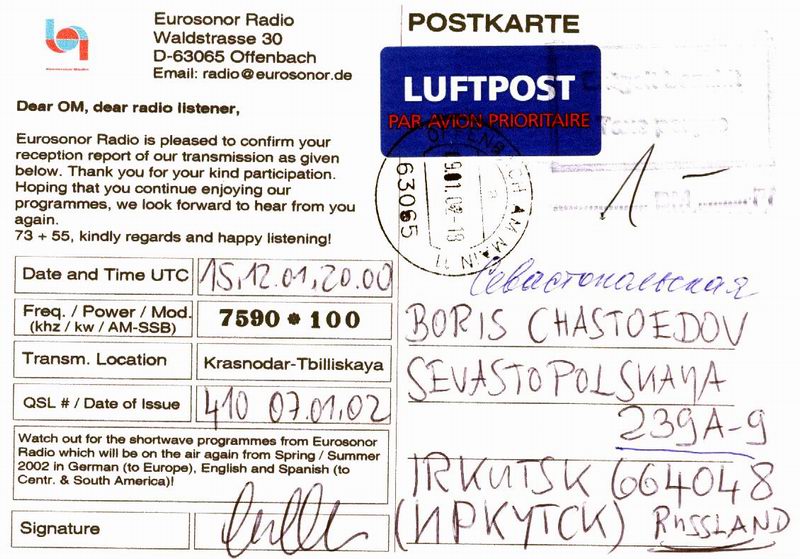 Eurosonor Radio
Waldstrasse 30
D-63065 Offenbach
Email: radio@eurosonor.de
Dear OM, dear radio listener,
Eurosonor Radio is pleased to confirm your
reception report of our transmission as given
below. Thank you for your kind participation.
Hoping that you continue enjoying our
programmes, we look forward to hear from you
again.
73 + 55, kindly regards and happy listening!
Date and Time UTC 15,12.01,20.00
Freq. / Power / Mod. 7590 * 100
(khz / kw / AM-SSB)
Transm. Location Krasnodar-Tbilliskaya
QSL # / Date of Issue 410 07.01.02
Watch out for the shortwave programmes from Eurosonor
Radio which will be on the air again from Spring / Summer
2002 in German (to Europe), English and Spanish (to
Centr. & South America)!
Signature
POSTKARTE
LUFTPOST
PAR AVION PRIORITAIRE
AM MAIN 11
63065
1 –
Севастопольская
BORIS CHASTOEDOV
SEVASTOPOLSKAYA
239A-9
IRKUTSK 664048
(ИРКУТСК) RUSSLAND